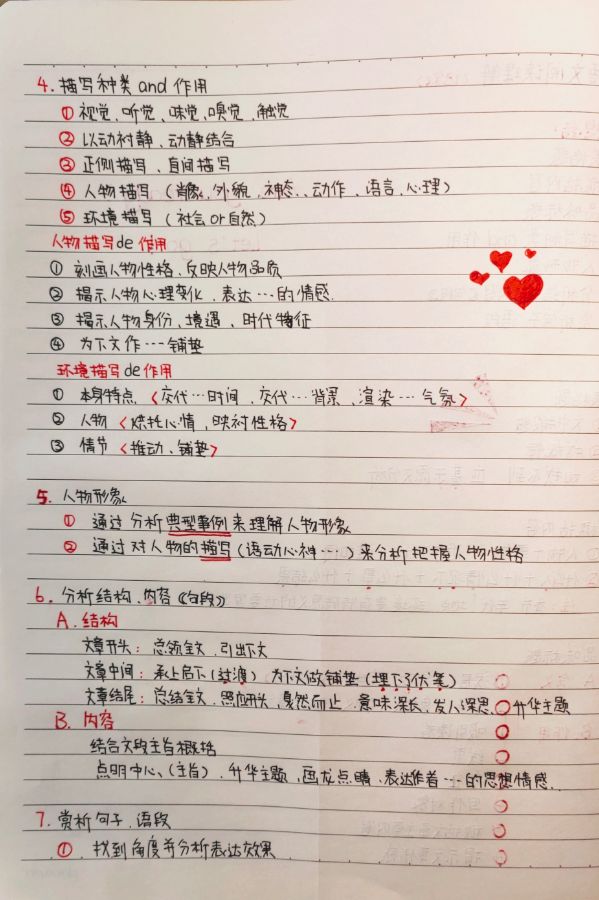 4. 描写种类 and 作用
① 视觉、听觉、味觉、嗅觉、触觉
② 以动衬静、动静结合
③ 正侧描写、直间描写
④ 人物描写（肖像、外貌、神态、动作、语言、心理）
⑤ 环境描写（社会or自然）
人物描写de作用
① 刻画人物性格、反映人物品质
② 揭示人物心理变化、表达…的情感.
③ 揭示人物身份、境遇、时代特征
④ 为下文作…铺垫
环境描写de作用
① 本身特点〈交代…时间，交代…背景，渲染…气氛〉
② 人物〈烘托心情，映衬性格〉
③ 情节〈推动、铺垫〉
5. 人物形象
① 通过分析典型事例来理解人物形象
② 通过对人物的描写(语动心神…)来分析把握人物性格
6. 分析结构、内容《句段》
A. 结构
文章开头：总领全文、引出下文
文章中间：承上启下(过渡) 为下文做铺垫(埋下了伏笔)
文章结尾：总结全文、照应开头，戛然而止 意味深长，发人深思 升华主题
B. 内容
结合文段主旨概括
点明中心、(主旨)，升华主题，画龙点睛、表达作者…的思想情感.
7. 赏析句子、语段
①、找到角度并分析表达效果